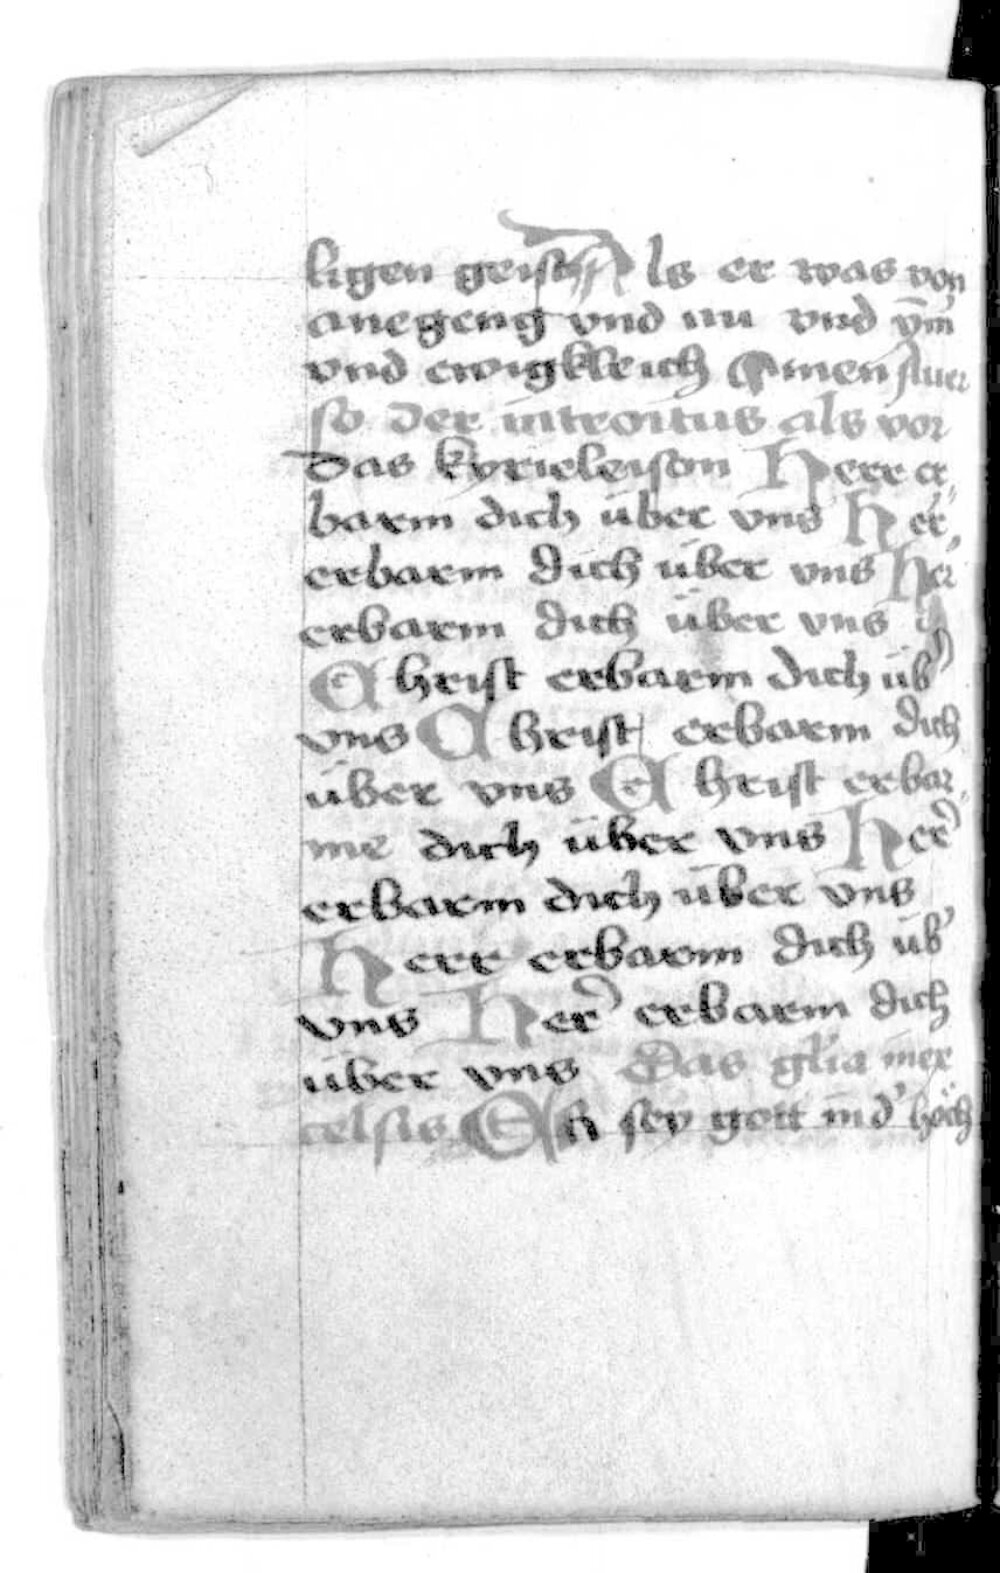 ligen geist Als er was von
anegeng vnd nu vnd ym̄
vnd ewigkleich Amen
so der introitus als vor
das kyrieleison Herr er-
barm dich über vns Her̄
erbarm dich über vns Her̄
erbarm dich über vns
Christ erbarm dich üb'
vns Christ erbarm dich
über vns Christ erbar-
me dich über vns Her̄
erbarm dich über vns
Herr erbarm dich üb'
vns Her̄ erbarm dich
über vns Das gl'ia in ex
celsis Er sey gott in d' höch